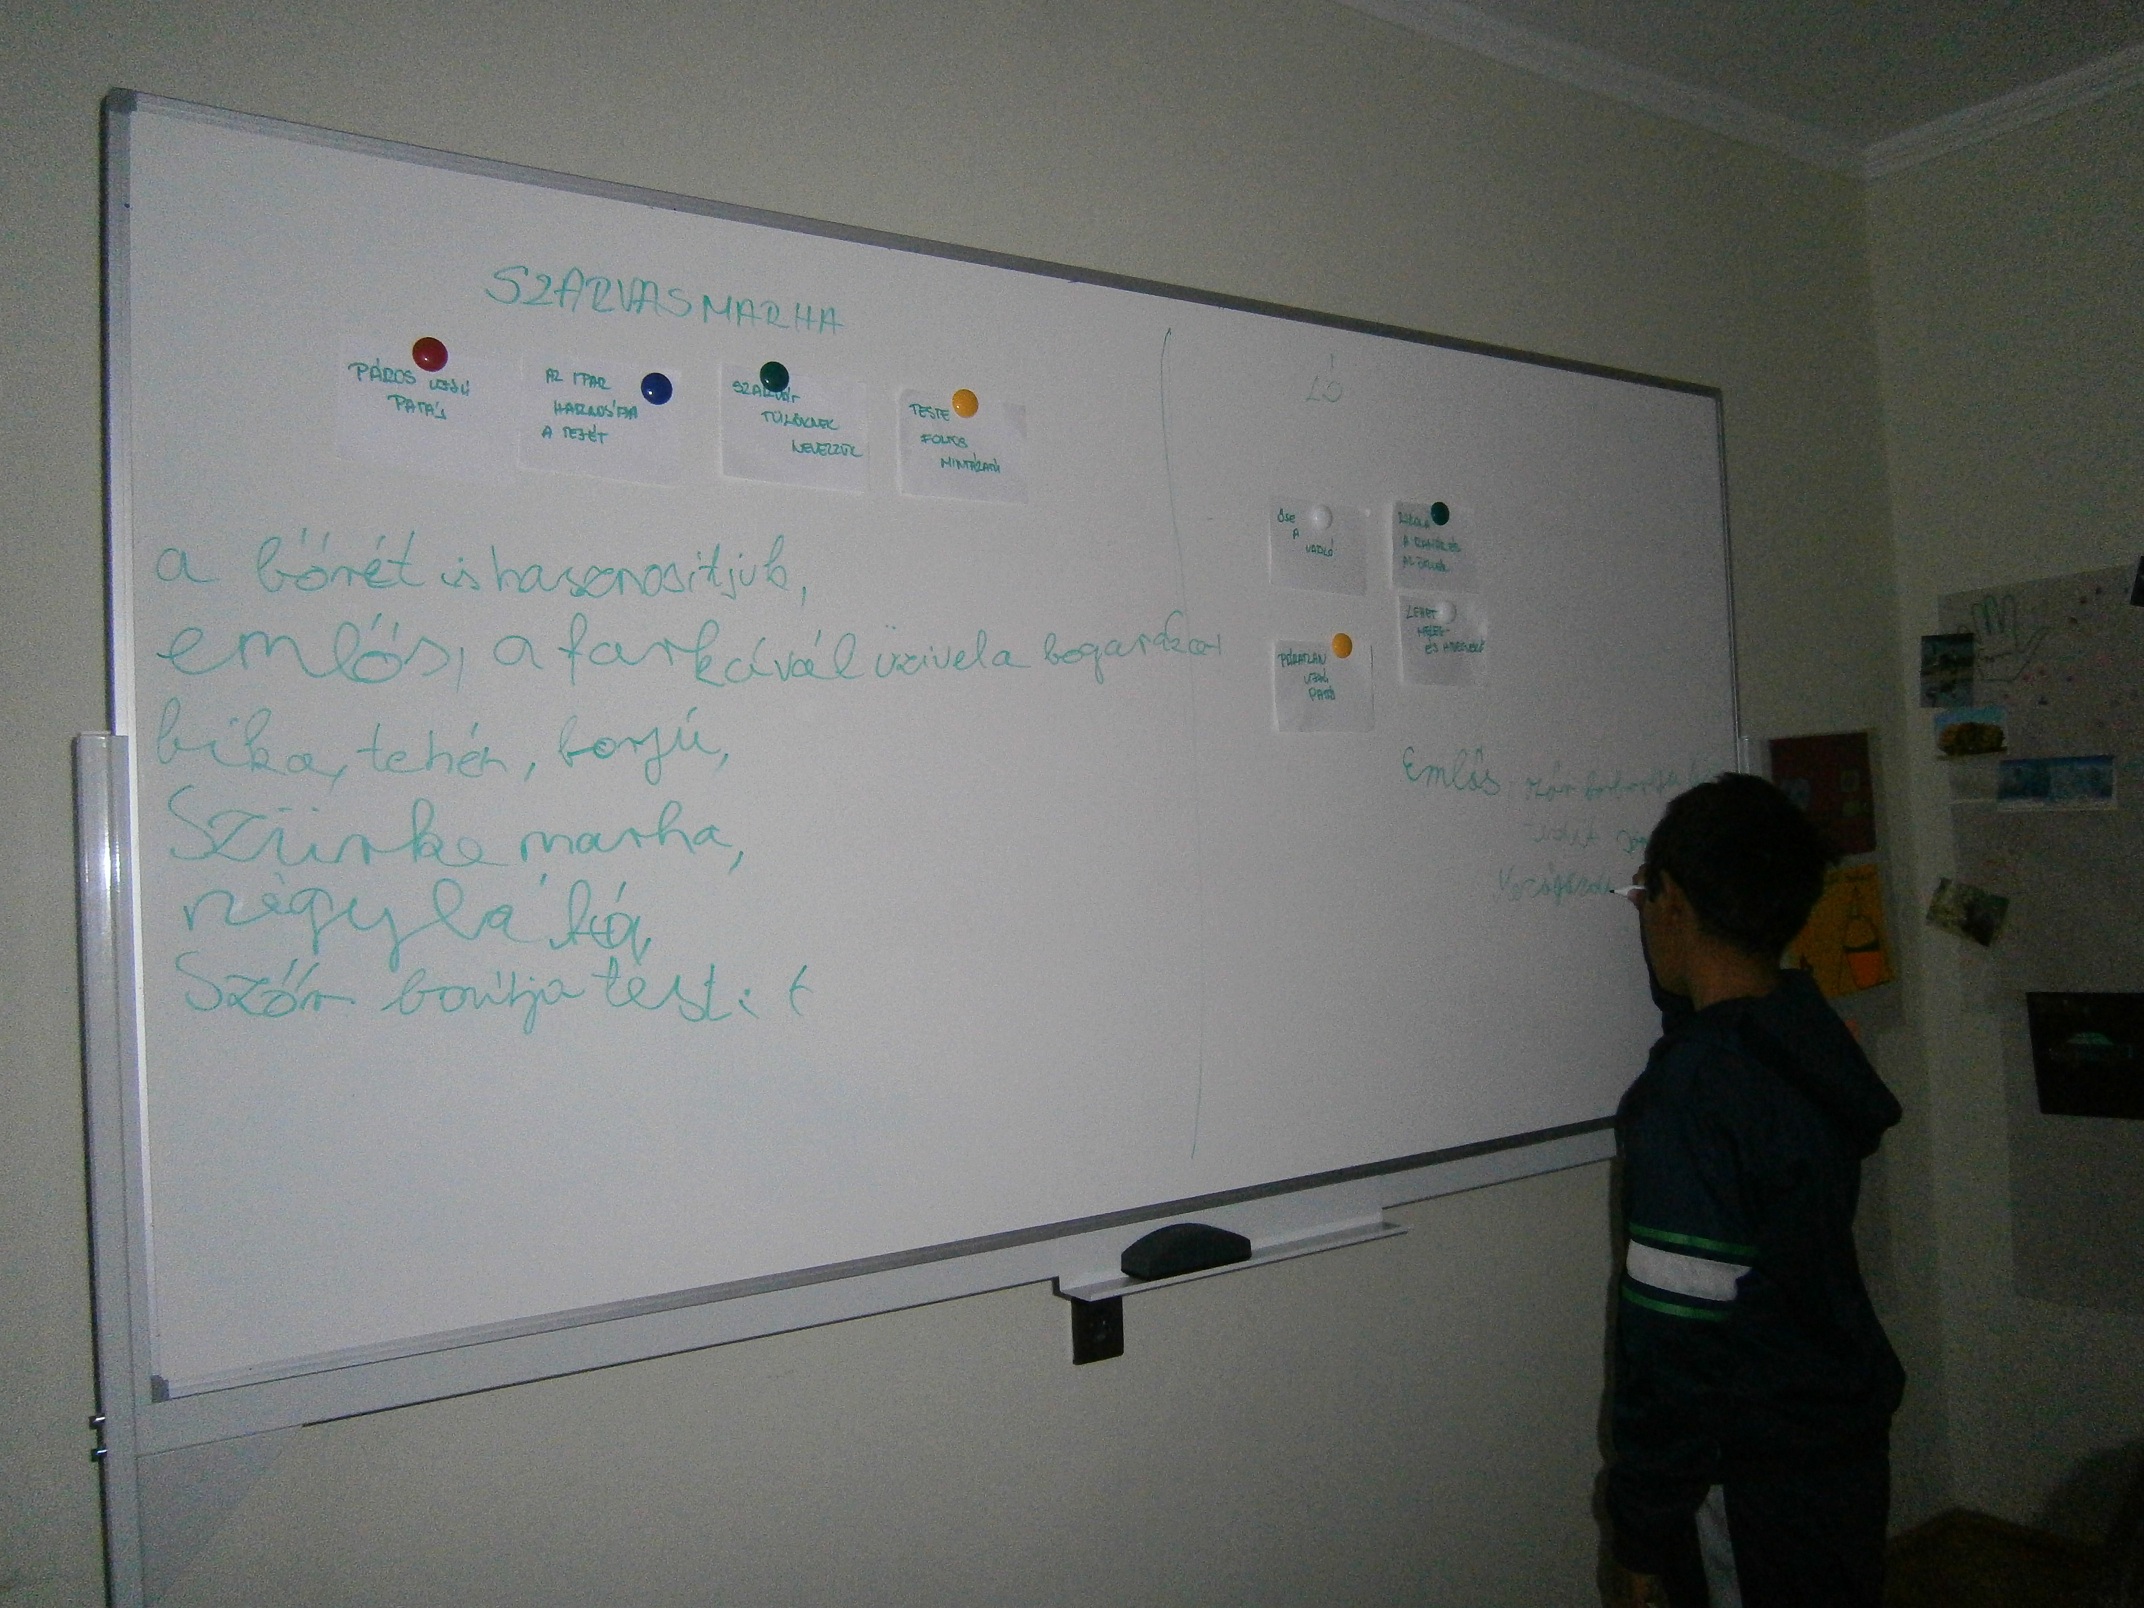 SZARVASMARHA
PÁROS UJJÚ
PATÁS
AZ IPAR
A TEJÉT
SZARVÁT
TÜLÖKNEK
NEVEZZÜK
TESTE
FOLTOS
MINTÁZATÚ
a bőrét is hasznosítjuk,
emlős, a farkával űzi vel a bogarakat
bika, tehén, borjú,
Szürke marha,
négy lá
Szőr borítja test:t
LÓ
ŐSE
A
VADLÓ
A
LEHET
MELEG-
PÁRATLAN
UJJÚ
PATÁS
Emlős, szőr borítja